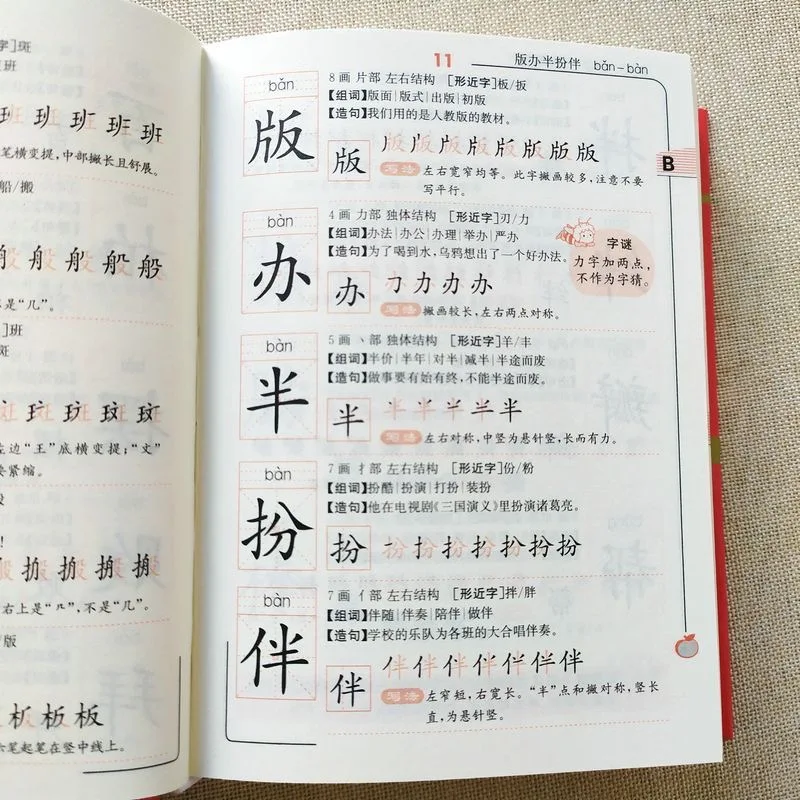 字]斑
班
班班班班班
笔横变提，中部撇长且舒展。
船/搬
般般般般般
是“儿”。
]班
斑
斑斑斑斑斑
左边“王”底横变提；“文”
要紧缩。
般
搬搬搬搬
右上是“⺇”，不是“几”。
/版
板板板板
六笔起笔在竖中线上。
11
版办半扮伴 bǎn－bàn
B
bǎn
版
8画 片部 左右结构 [形近字]板/扳
【组词】版面|版式|出版|初版
【造句】我们用的是人教版的教材。
版 版版版版版版版版
写法 左右宽窄均等。此字撇画较多，注意不要
写平行。
bàn
办
4画 力部 独体结构 [形近字]刃/力
【组词】办法|办公|办理|举办|严办
【造句】为了喝到水，乌鸦想出了一个好办法。
办 办办办办
写法 撇画较长，左右两点对称。
字谜
力字加两点，
不作为字猜。
bàn
半
5画 丶部 独体结构 [形近字]羊/丰
【组词】半价|半年|对半|减半|半途而废
【造句】做事要有始有终，不能半途而废。
半 半半半半半
写法 左右对称，中竖为悬针竖，长而有力。
bàn
扮
7画 扌部 左右结构 [形近字]份/粉
【组词】扮酷|扮演|打扮|装扮
【造句】他在电视剧《三国演义》里扮演诸葛亮。
扮 扮扮扮扮扮扮扮
bàn
伴
7画 亻部 左右结构 [形近字]拌/胖
【组词】伴随|伴奏|陪伴|做伴
【造句】学校的乐队为各班的大合唱伴奏。
伴 伴伴伴伴伴伴伴
写法 左窄短，右宽长。“半”点和撇对称，竖长
直，为悬针竖。